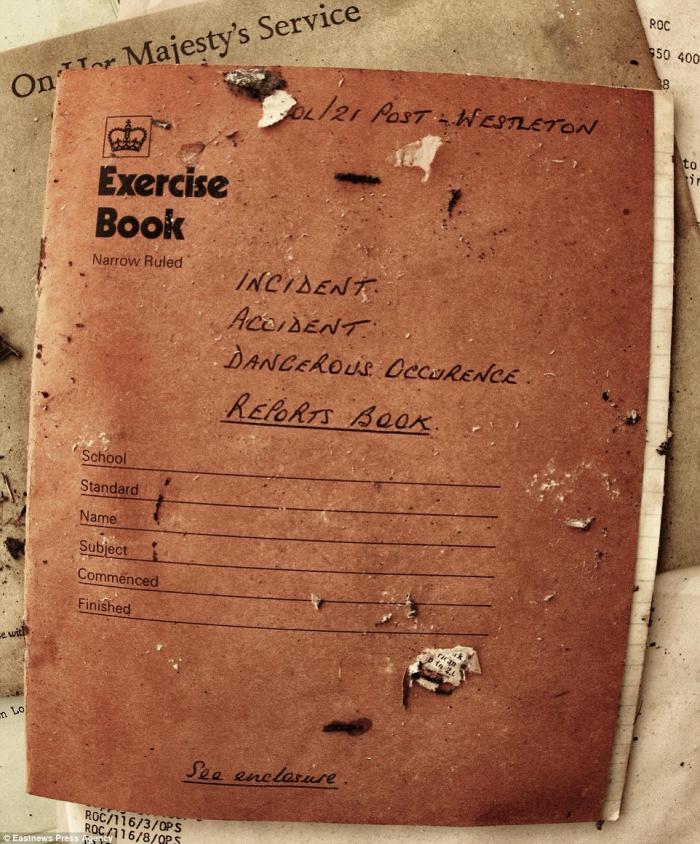 On Her Majesty's Service
ROC
OL/21 POST - WESTLETON
Exercise
Book
Narrow Ruled
INCIDENT.
ACCIDENT.
DANGEROUS OCCURENCE.
REPORTS BOOK.
School
Standard
Name
Subject
Commenced
Finished
See enclosure.
ROC/116/3/OPS
ROC/116/8/OPS
© Eastnews Press Agency